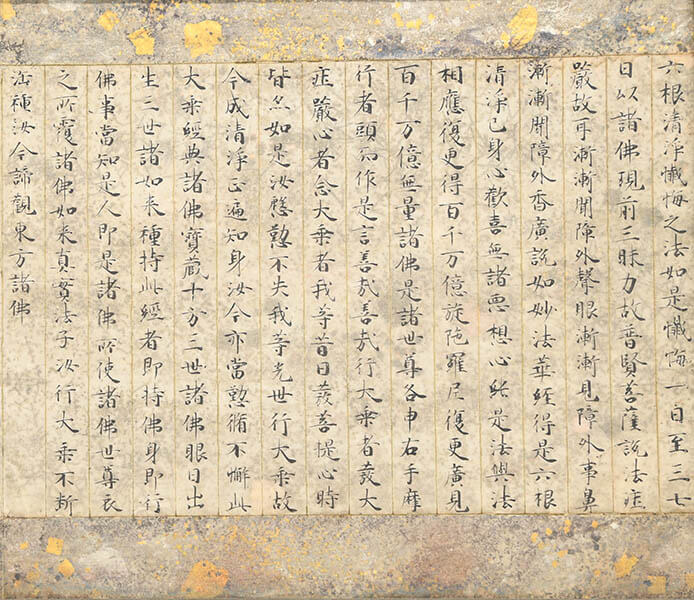 六根清淨懺悔之法如是懺悔一日至三七
日以諸佛現前三昧力故普賢菩薩說法莊
嚴故耳漸漸聞障外聲眼漸漸見障外事鼻
漸漸聞障外香廣說如妙法華經得是六根
清淨已身心歡喜無諸惡想心純是法與法
相應復更得百千万億旋陁羅尼復更廣見
百千万億無量諸佛是諸世尊各申右手摩
行者頭而作是言善哉善哉行大乘者發大
莊嚴心者念大乘者我等昔日發菩提心時
皆亦如是汝慇懃不失我等先世行大乘故
今成清淨正遍知身汝今亦當懃脩不懈此
大乘經典諸佛寶藏十方三世諸佛眼目出
生三世諸如来種持此經者即持佛身即行
佛事當知是人即是諸佛所使諸佛世尊衣
之所覆諸佛如来真實法子汝行大乘不断
法種汝今諦觀東方諸佛